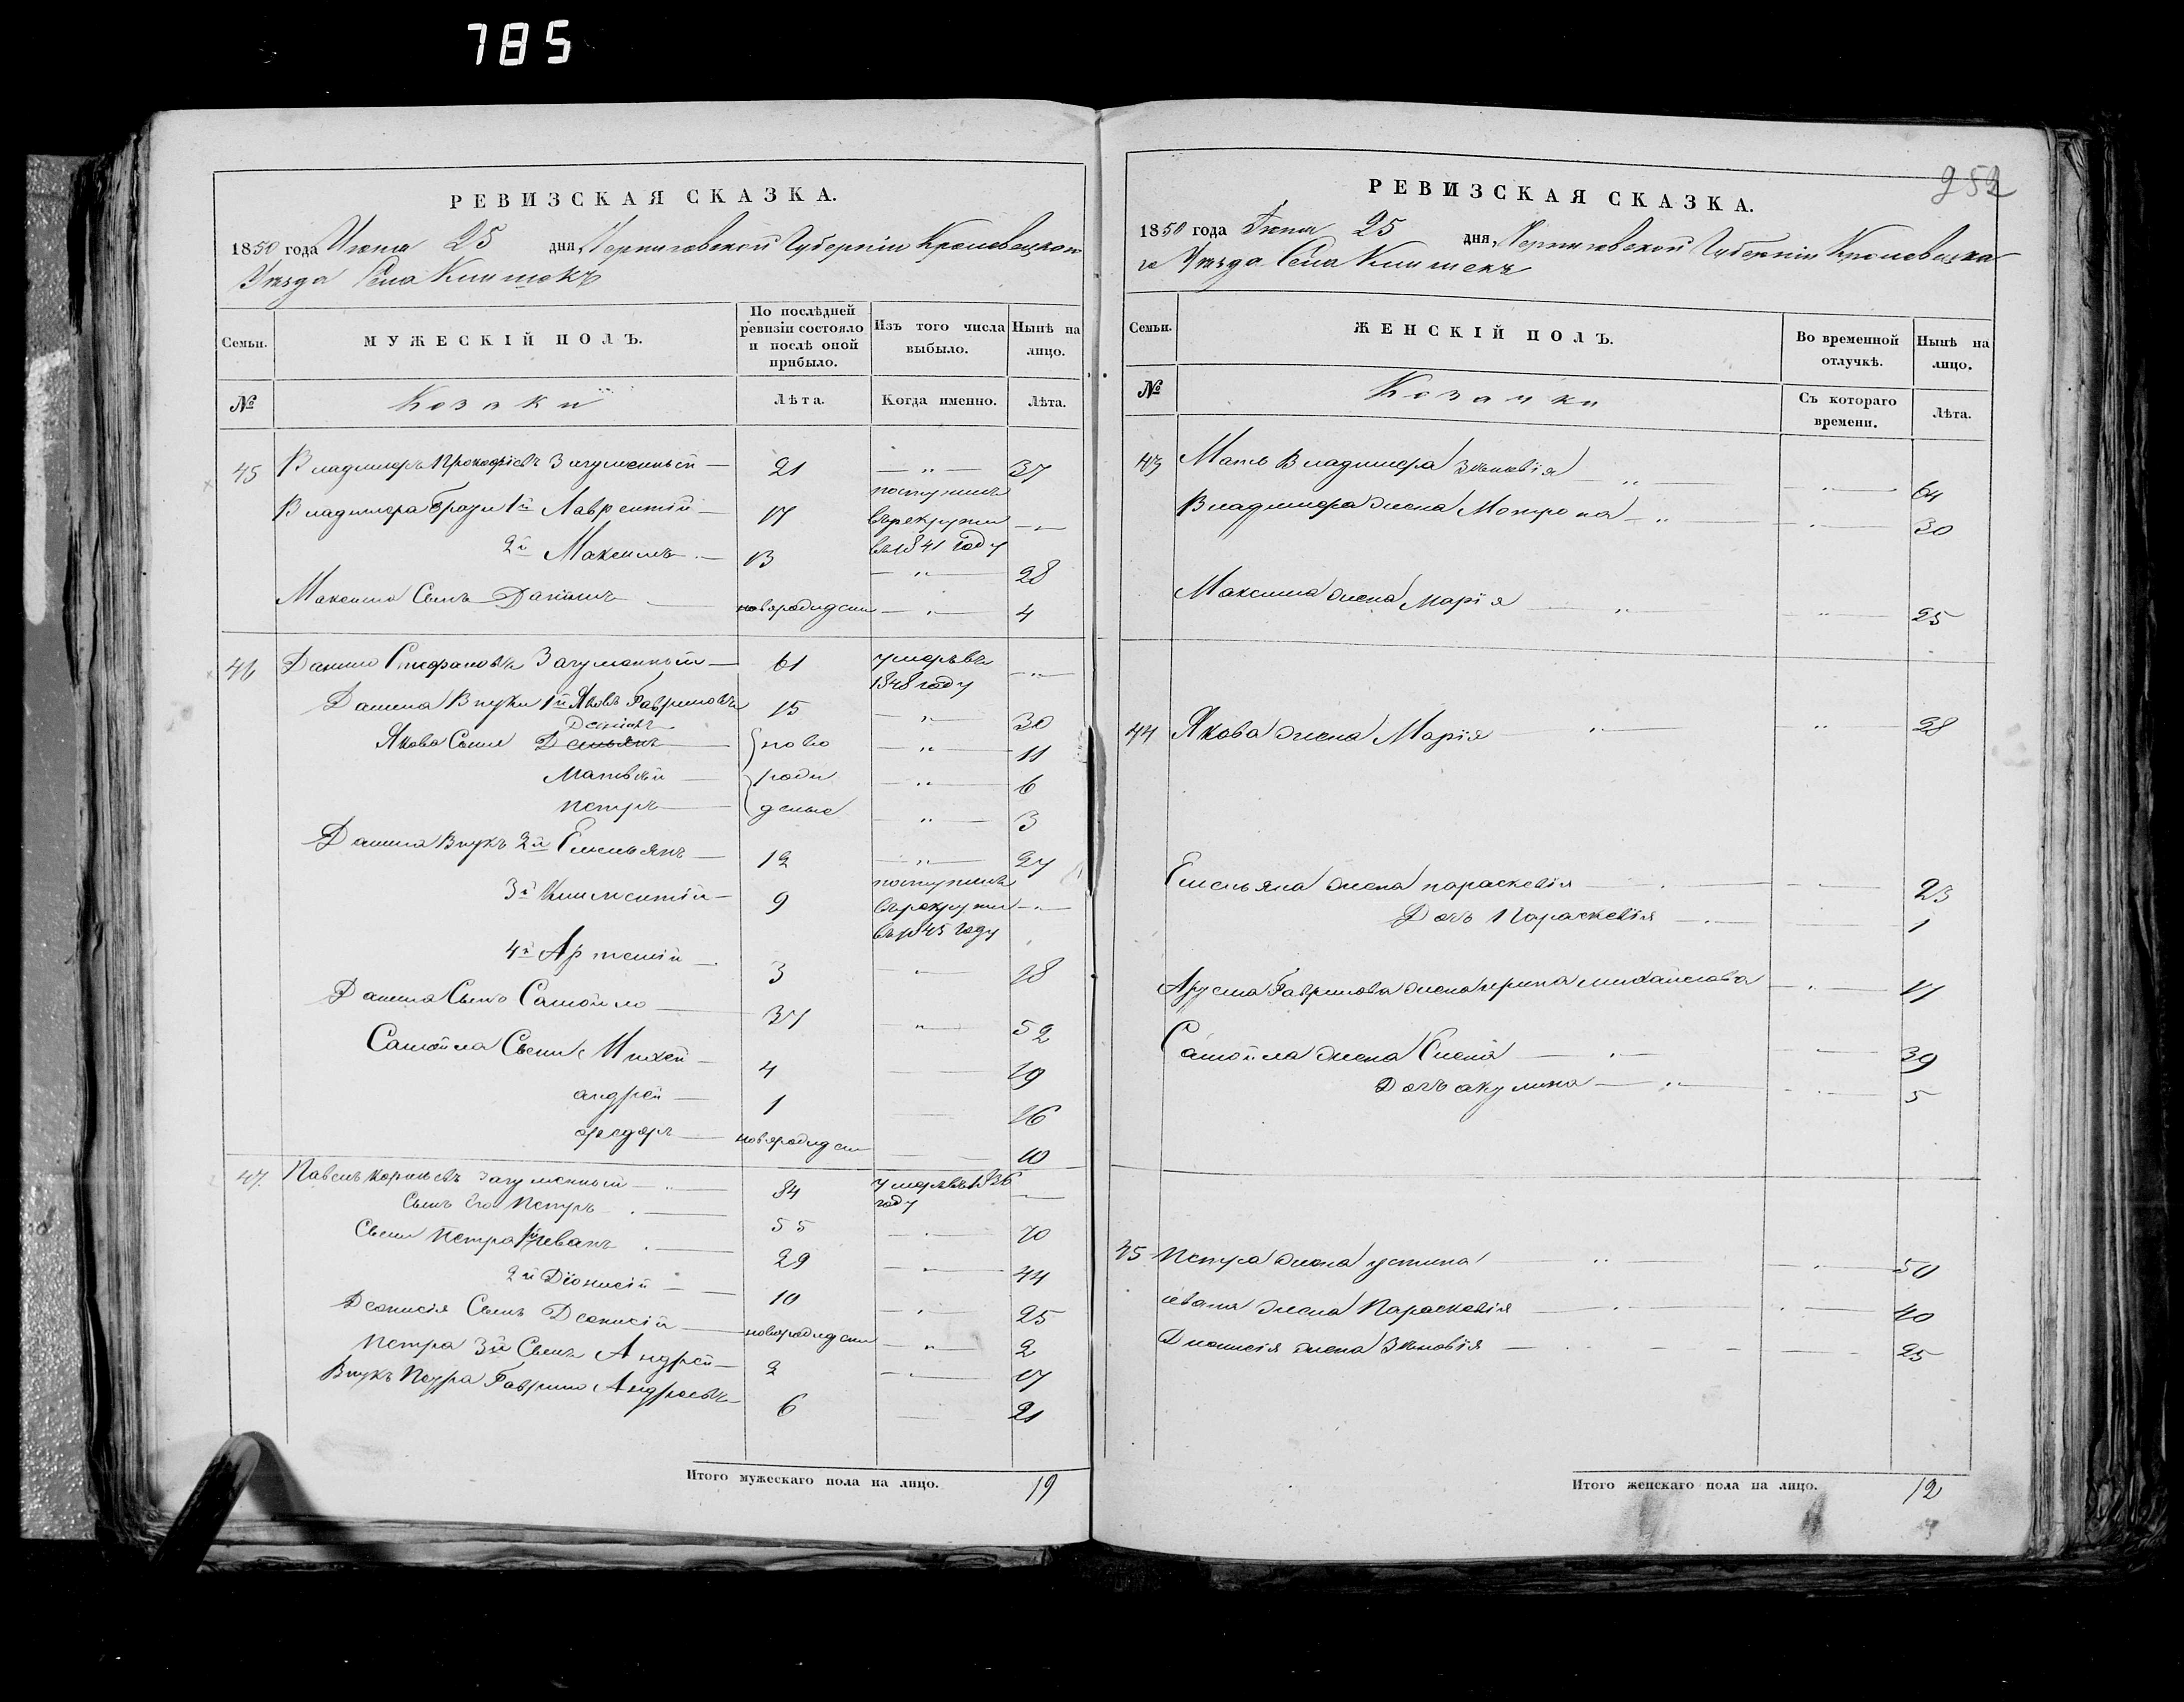 785
РЕВИЗСКАЯ СКАЗКА.
1850 года Июня 25 дня, Черниговской Губерніи Кролевецкого
Уѣзда Села Клишекъ
Семьи.
МУЖЕСКІЙ ПОЛЪ.
По послѣдней ревизіи состояло и послѣ оной прибыло.
Изъ того числа выбыло.
Нынѣ на лицо.
№
Козаки
Лѣта.
Когда именно.
Лѣта.
45 Владимеръ Прокофіевъ Загуменный — 21 — „ — 37
Владимера Брати 1й Лаврентій — 17 поступилъ въ рекруты въ 1841 году — „ —
2й Максимъ — 13 — „ — 28
Максима Сынъ Данiилъ новорожден — „ — 4
46 Данило Стефановъ Загуменный — 61 умеръ въ 1848 году — „ —
Данила Внуки 1й Яковъ Гавриловъ 15 — „ — 30
Якова Сыни Демьянъ — ново — „ — 11
Матвѣй — рож — „ — 6
Петръ — деные — „ — 3
Данила Внукъ 2й Емельянъ — 12 — „ — 27
3й Климентій — 9 поступилъ въ рекруты въ 1845 году — „ —
4й Артемій — 3 — „ — 18
Данила Сынъ Самойло — 37 — „ — 52
Самойла Сыни Михей — 4 — 19
андрей — 1 — 16
федоръ — новорожден — 10
47. Павелъ Корнѣевъ Загуменный — 84 умеръ въ 1836 году —
Сынъ Его Петръ — 55 — 70
Сыни Петра 1й иванъ — 29 — „ — 44
2й Діонисій — 10 — 25
Деонисія Сынъ Деонисій — новорожден — „ — 2
Петра 3й Сынъ Андрей — 2 — 17
Внукъ Петра Гаврило Андреевъ 6 — 21
Итого мужескаго пола на лицо. 19
252
РЕВИЗСКАЯ СКАЗКА.
1850 года Іюня 25 дня, Черниговской Губерніи Кролевецка
го Уѣзда Села Клишекъ
Семьи.
ЖЕНСКІЙ ПОЛЪ.
Во временной отлучкѣ.
Нынѣ на лицо.
№
Козачки
Съ котораго времени.
Лѣта.
43 Мать Владимера Зѣновія — „ — 64
Владимера жена Мотрона — „ — 30
Максима жена Марія „ — „ — 25
44 Якова жена Марія — „ — 28
Емельяна жена параскевія — 23
Дочь Параскевія — 1
Артема Гаврилова жена ирина михайлова — 17
Самойла жена Ксенія — 39
Дочь акулина — „ — 5
45 Петра жена устина — „ — 50
ивана жена Параскевія — 40
Дионисія жена Зѣновія — 25
Итого женскаго пола на лицо. 12